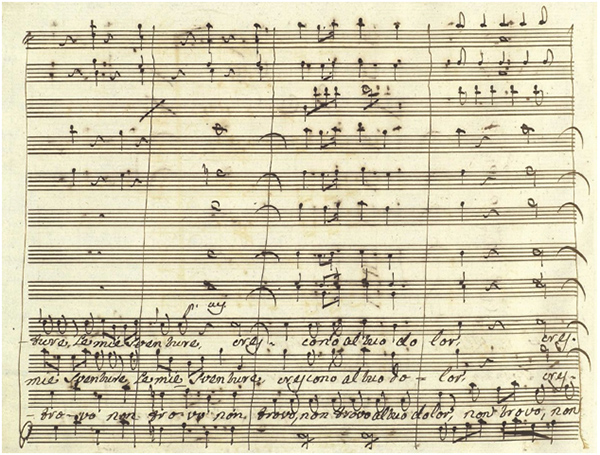 -ture, le mie Sventure, cres- cono al tuo do lor, cres-
mie Sventure, le mie Sventure, crescono al tuo do- lor, cres-
- tro-vo non tro-vo non trovo, non trovo al tuo dolor, non trovo, non